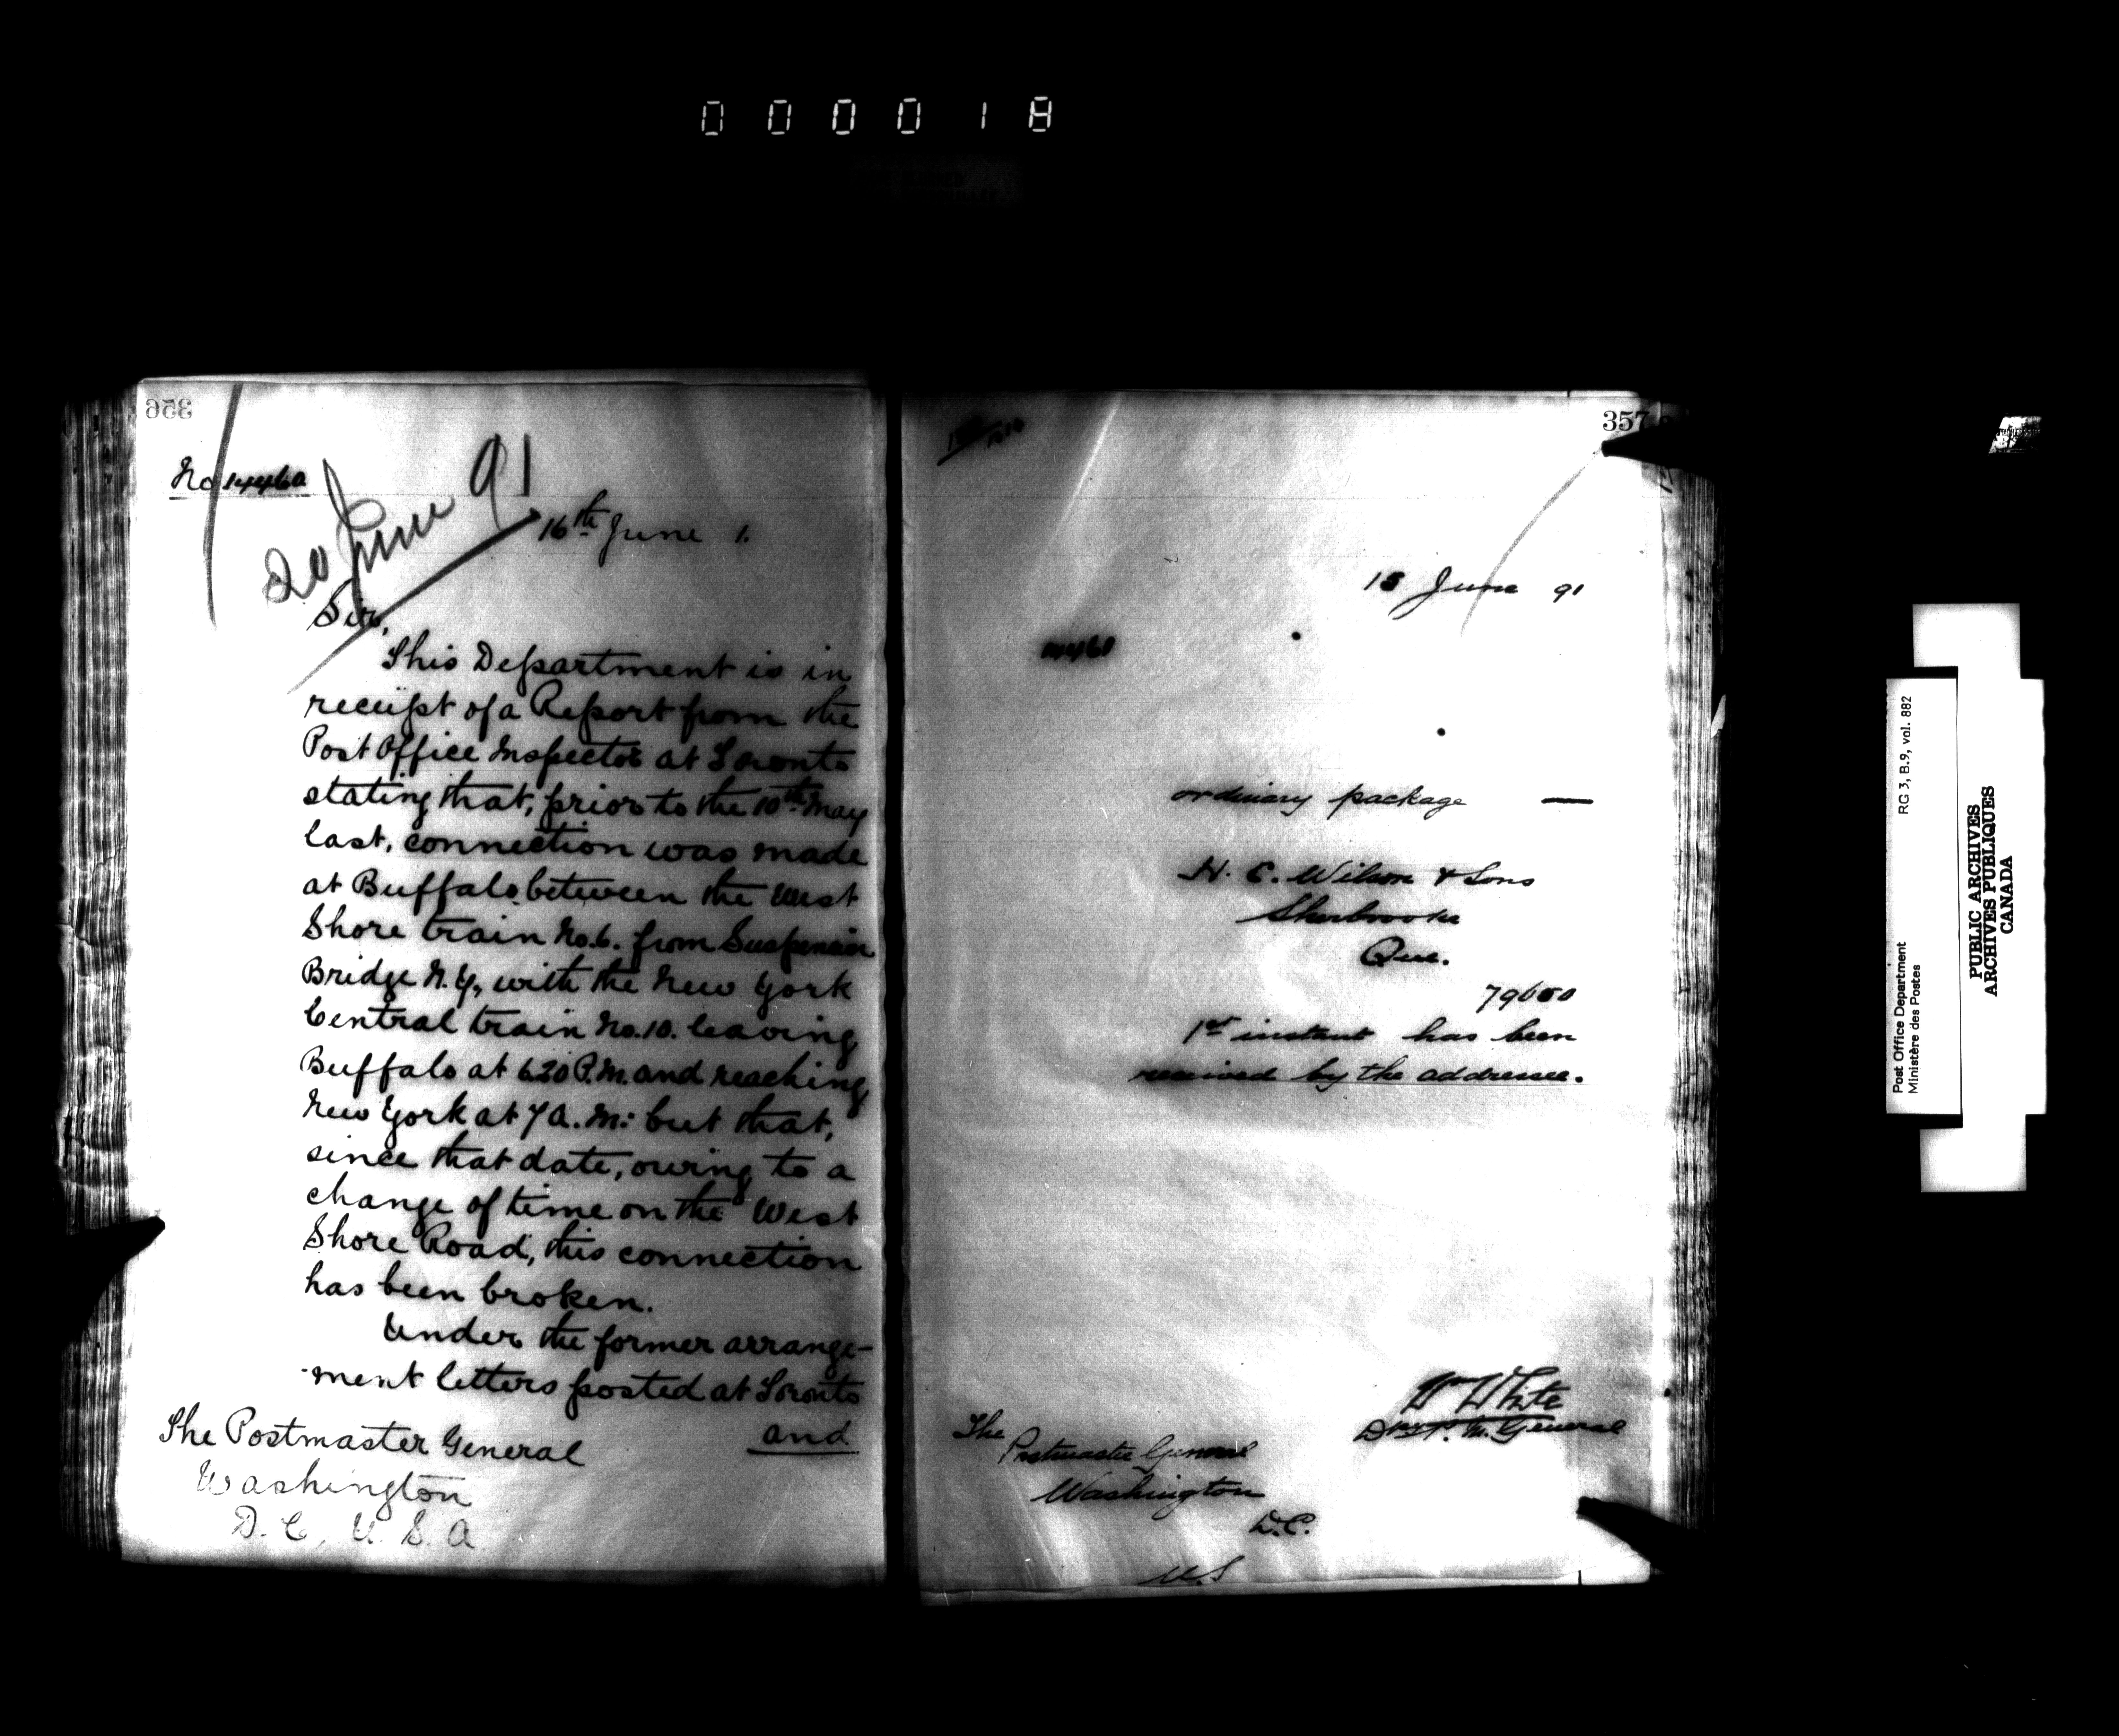 000018
356
No 14460
20 June 91
16th June 1.
Sir,
This Department is in
receipt of a Report from the
Post Office Inspector at Toronto
stating that, prior to the 10th May
last, connection was made
at Buffalo between the West
Shore train No. 6. from Suspension
Bridge N.Y., with the New York
Central train No. 10. leaving
Buffalo at 6.20 P.M. and reaching
New York at 7 A.M: but that,
since that date, owing to a
change of time on the West
Shore Road, this connection
has been broken.
Under the former arrange-
-ment letters posted at Toronto
and
The Postmaster General
Washington
D.C, U.S.A
357
15 June 91
14461
ordinary package —
H. C. Wilson & Sons
Sherbrooke
Que.
79600
1st instant has been
received by the addressee.
W White
Dy P. M. General
The
Postmaster General
Washington
D.C.
U.S
Post Office Department
Ministère des Postes
RG 3, B.9, vol. 882
PUBLIC ARCHIVES
ARCHIVES PUBLIQUES
CANADA